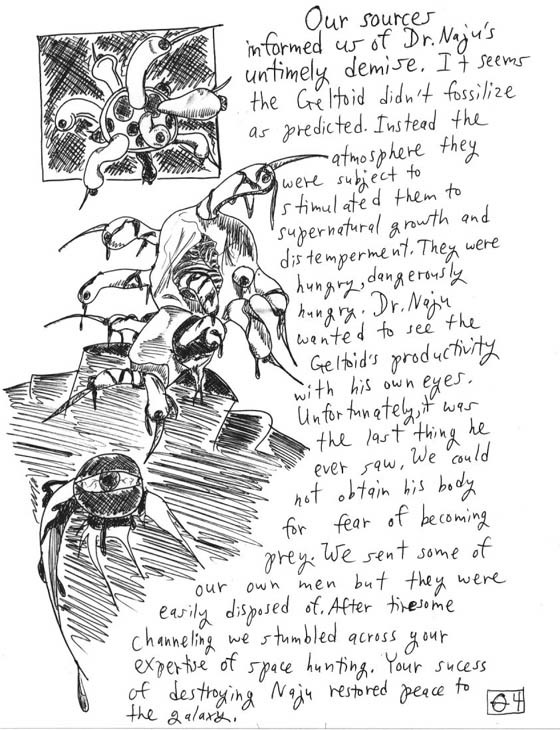 Our sources
informed us of Dr. Naju's
untimely demise. It seems
the Geltoid didn't fossilize
as predicted. Instead the
atmosphere they
were subject to
stimulated them to
supernatural growth and
distemperment. They were
hungry, dangerously
hungry. Dr. Naju
wanted to see the
Geltoid's productivity
with his own eyes.
Unfortunately, it was
the last thing he
ever saw. We could
not obtain his body
for fear of becoming
prey. We sent some of
our own men but they were
easily disposed of. After tiresome
channeling we stumbled across your
expertise of space hunting. Your sucess
of destroying Naju restored peace to
the galaxy.
04